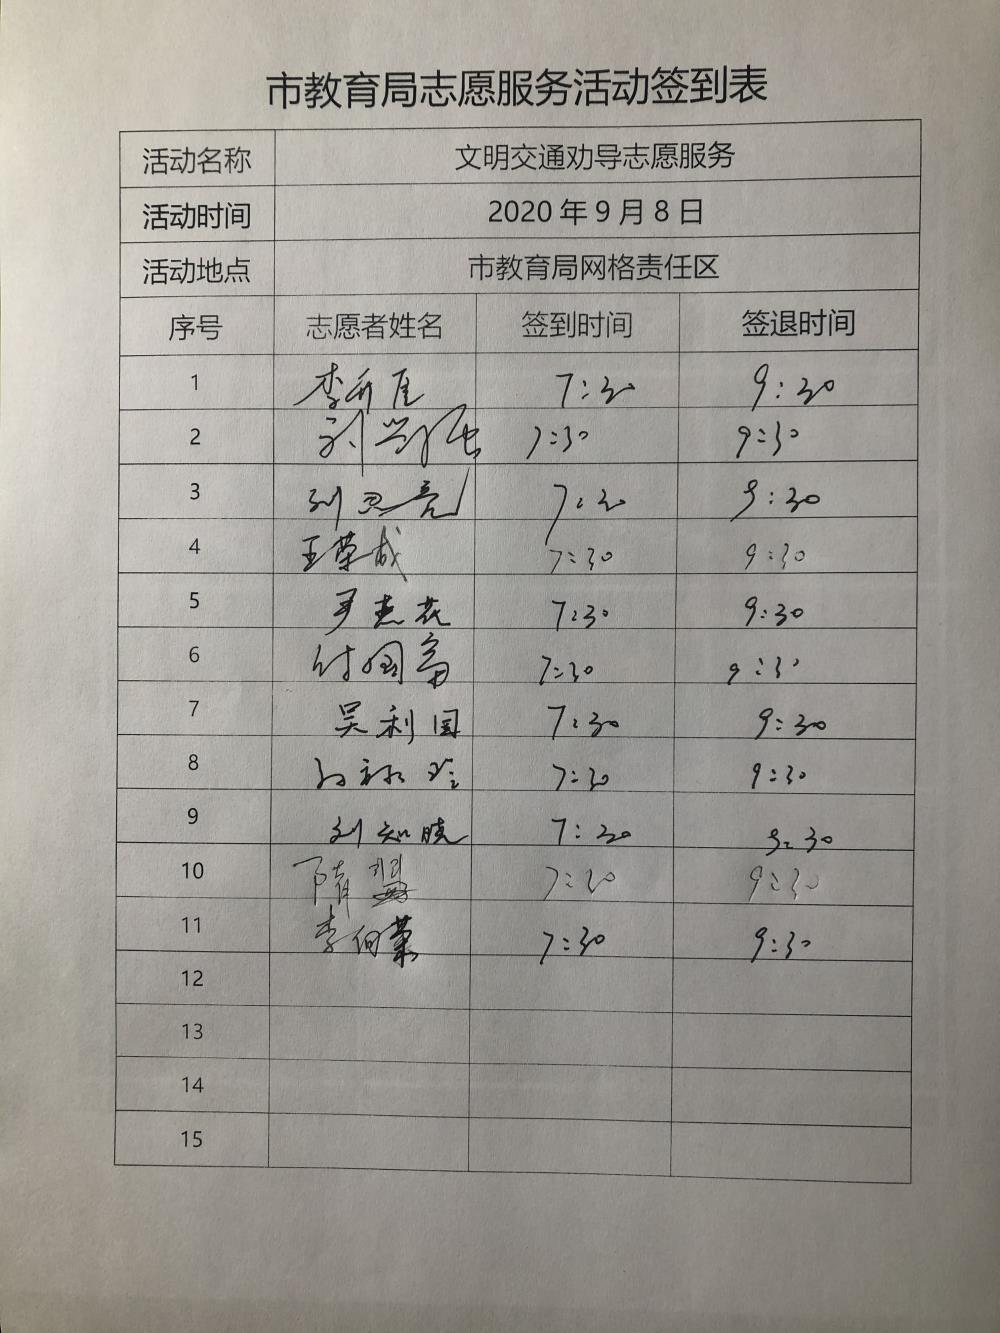 市教育局志愿服务活动签到表
活动名称 文明交通劝导志愿服务
活动时间 2020 年 9 月 8 日
活动地点 市教育局网格责任区
序号 志愿者姓名 签到时间 签退时间
1 李 7:30 9:30
2 刘 7:30 9:30
3 刘思亮 7:30 9:30
4 王荣成 7:30 9:30
5 7:30 9:30
6 付国富 7:30 9:30
7 吴利国 7:30 9:30
8 7:30 9:30
9 刘知晓 7:30 9:30
10 隋 7:30 9:30
11 李向荣 7:30 9:30
12
13
14
15